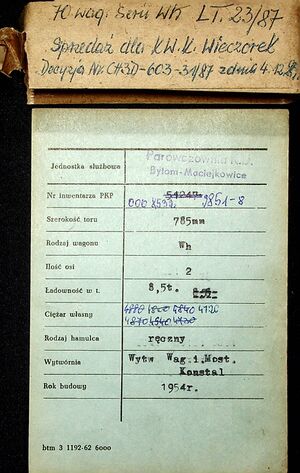 10 wag. Serii Wh LT. 23/87
Sprzedaż dla KWK. Wieczorek
Decyzja Nr. CH3D-603-31/87 z dnia 4.12.
Parowozownia
Jednostka służbowa Bytom-Maciejkowice
Nr inwentarza PKP 54247
000 8532 9851-8
Szerokość toru 785mm
Rodzaj wagonu Wh
Ilość osi 2
Ładowność w t. 8,5t.
Ciężar własny 4880 4800 4840 4720
4870 4940 4700
Rodzaj hamulca ręczny
Wytwórnia Wytw Wag.i.Most.
Konstal
Rok budowy 1954r.
btm 3 1192-62 6000